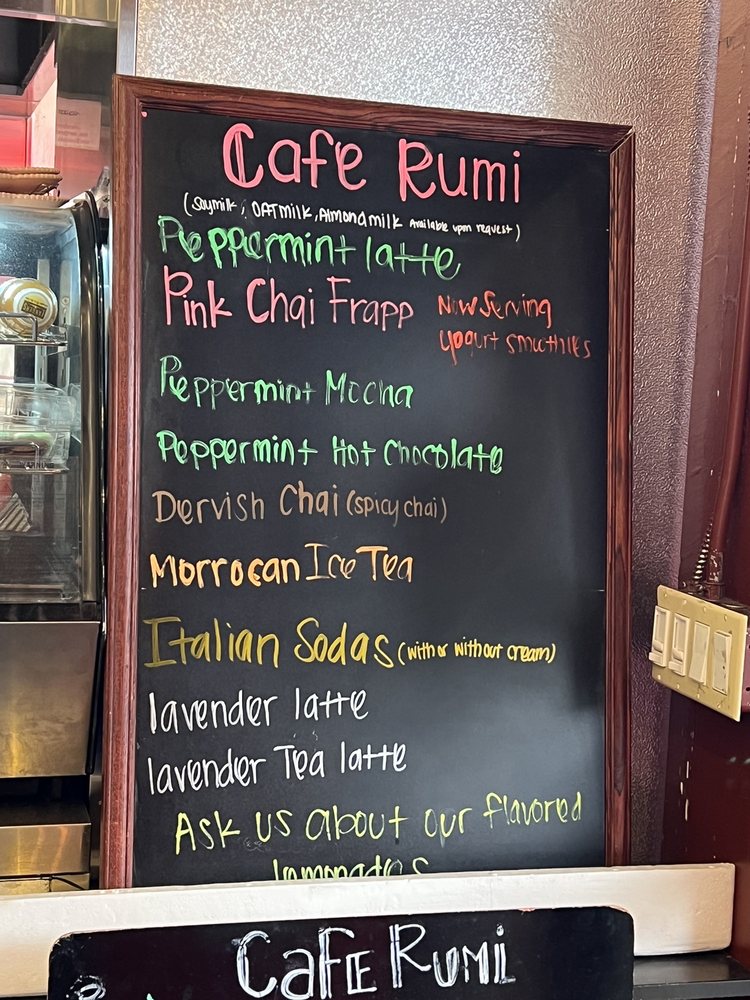 Cafe Rumi
(Soymilk, OATmilk, Almond milk Available upon request)
Peppermint latte
Pink Chai Frapp
Now Serving
yogurt smoothies
Peppermint Mocha
Peppermint Hot Chocolate
Dervish Chai (spicy chai)
Morrocan Ice Tea
Italian Sodas (with or without cream)
lavender latte
lavender Tea latte
Ask us about our flavored
lemonades
CaFE RUMI